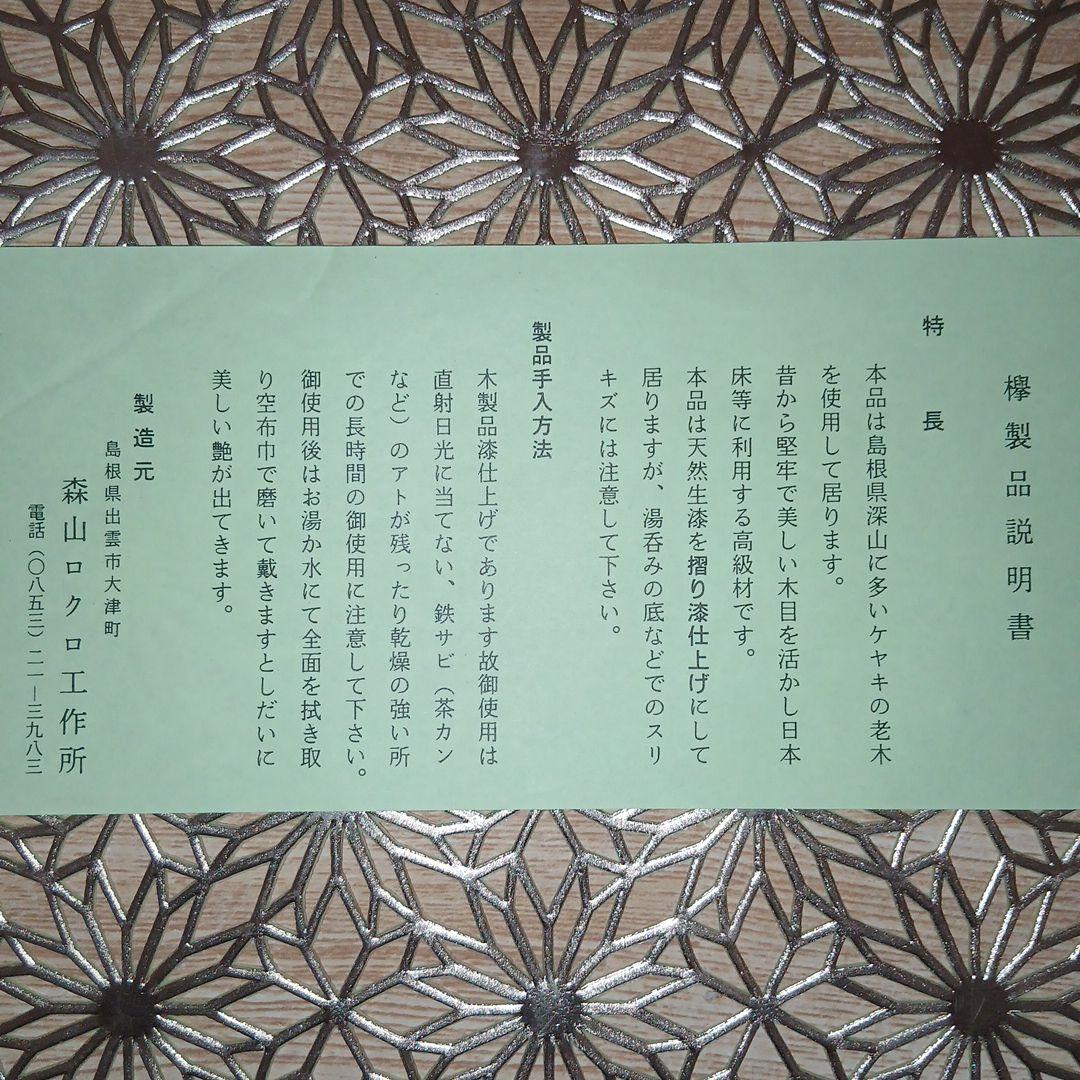 欅製品説明書
特長
本品は島根県深山に多いケヤキの老木
を使用して居ります。
昔から堅牢で美しい木目を活かし日本
床等に利用する高級材です。
本品は天然生漆を摺り漆仕上げにして
居りますが、湯呑みの底などでのスリ
キズには注意して下さい。
製品手入方法
木製品漆仕上げであります故御使用は
直射日光に当てない、鉄サビ（茶カン
など）のアトが残ったり乾燥の強い所
での長時間の御使用に注意して下さい。
御使用後はお湯か水にて全面を拭き取
り空布巾で磨いて戴きますとしだいに
美しい艶が出てきます。
製造元
島根県出雲市大津町
森山ロクロ工作所
電話（〇八五三）二一―三九八三